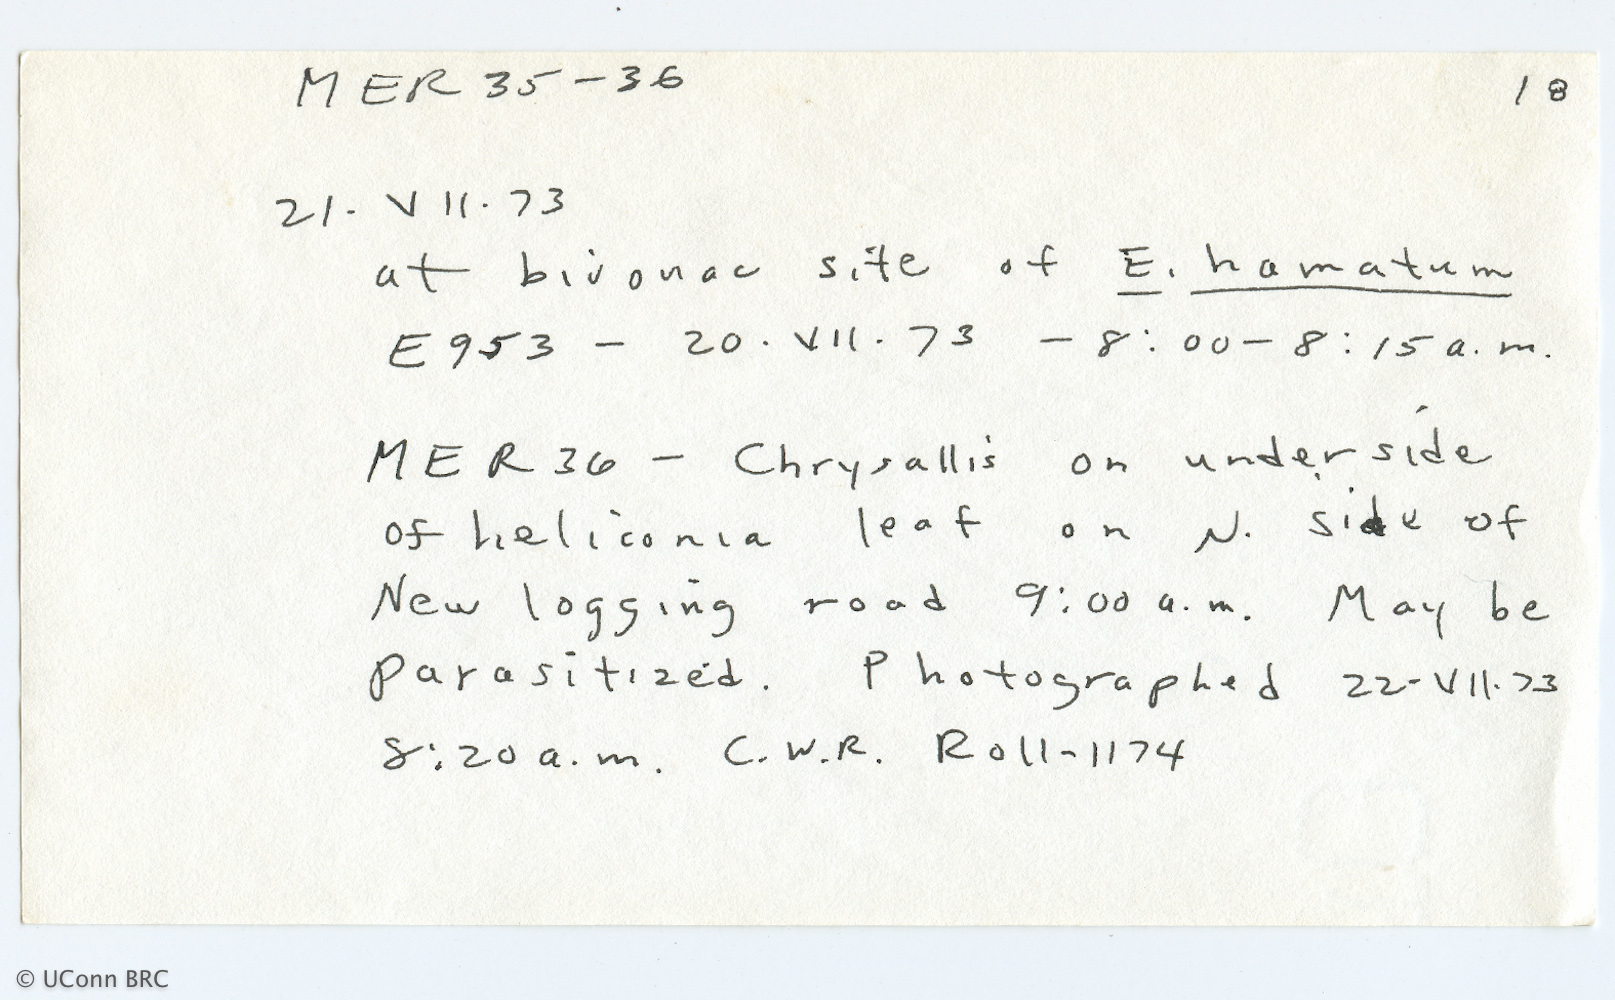 MER 35-36 18
21. VII. 73
at bivouac site of E. hamatum
E953 - 20. VII. 73 - 8:00-8:15 a.m.
MER 36 - Chrysallis on underside
of heliconia leaf on N. side of
New logging road 9:00 a.m. May be
parasitized. Photographed 22-VII.73
8:20 a.m. C.W.R. Roll-1174
© UConn BRC